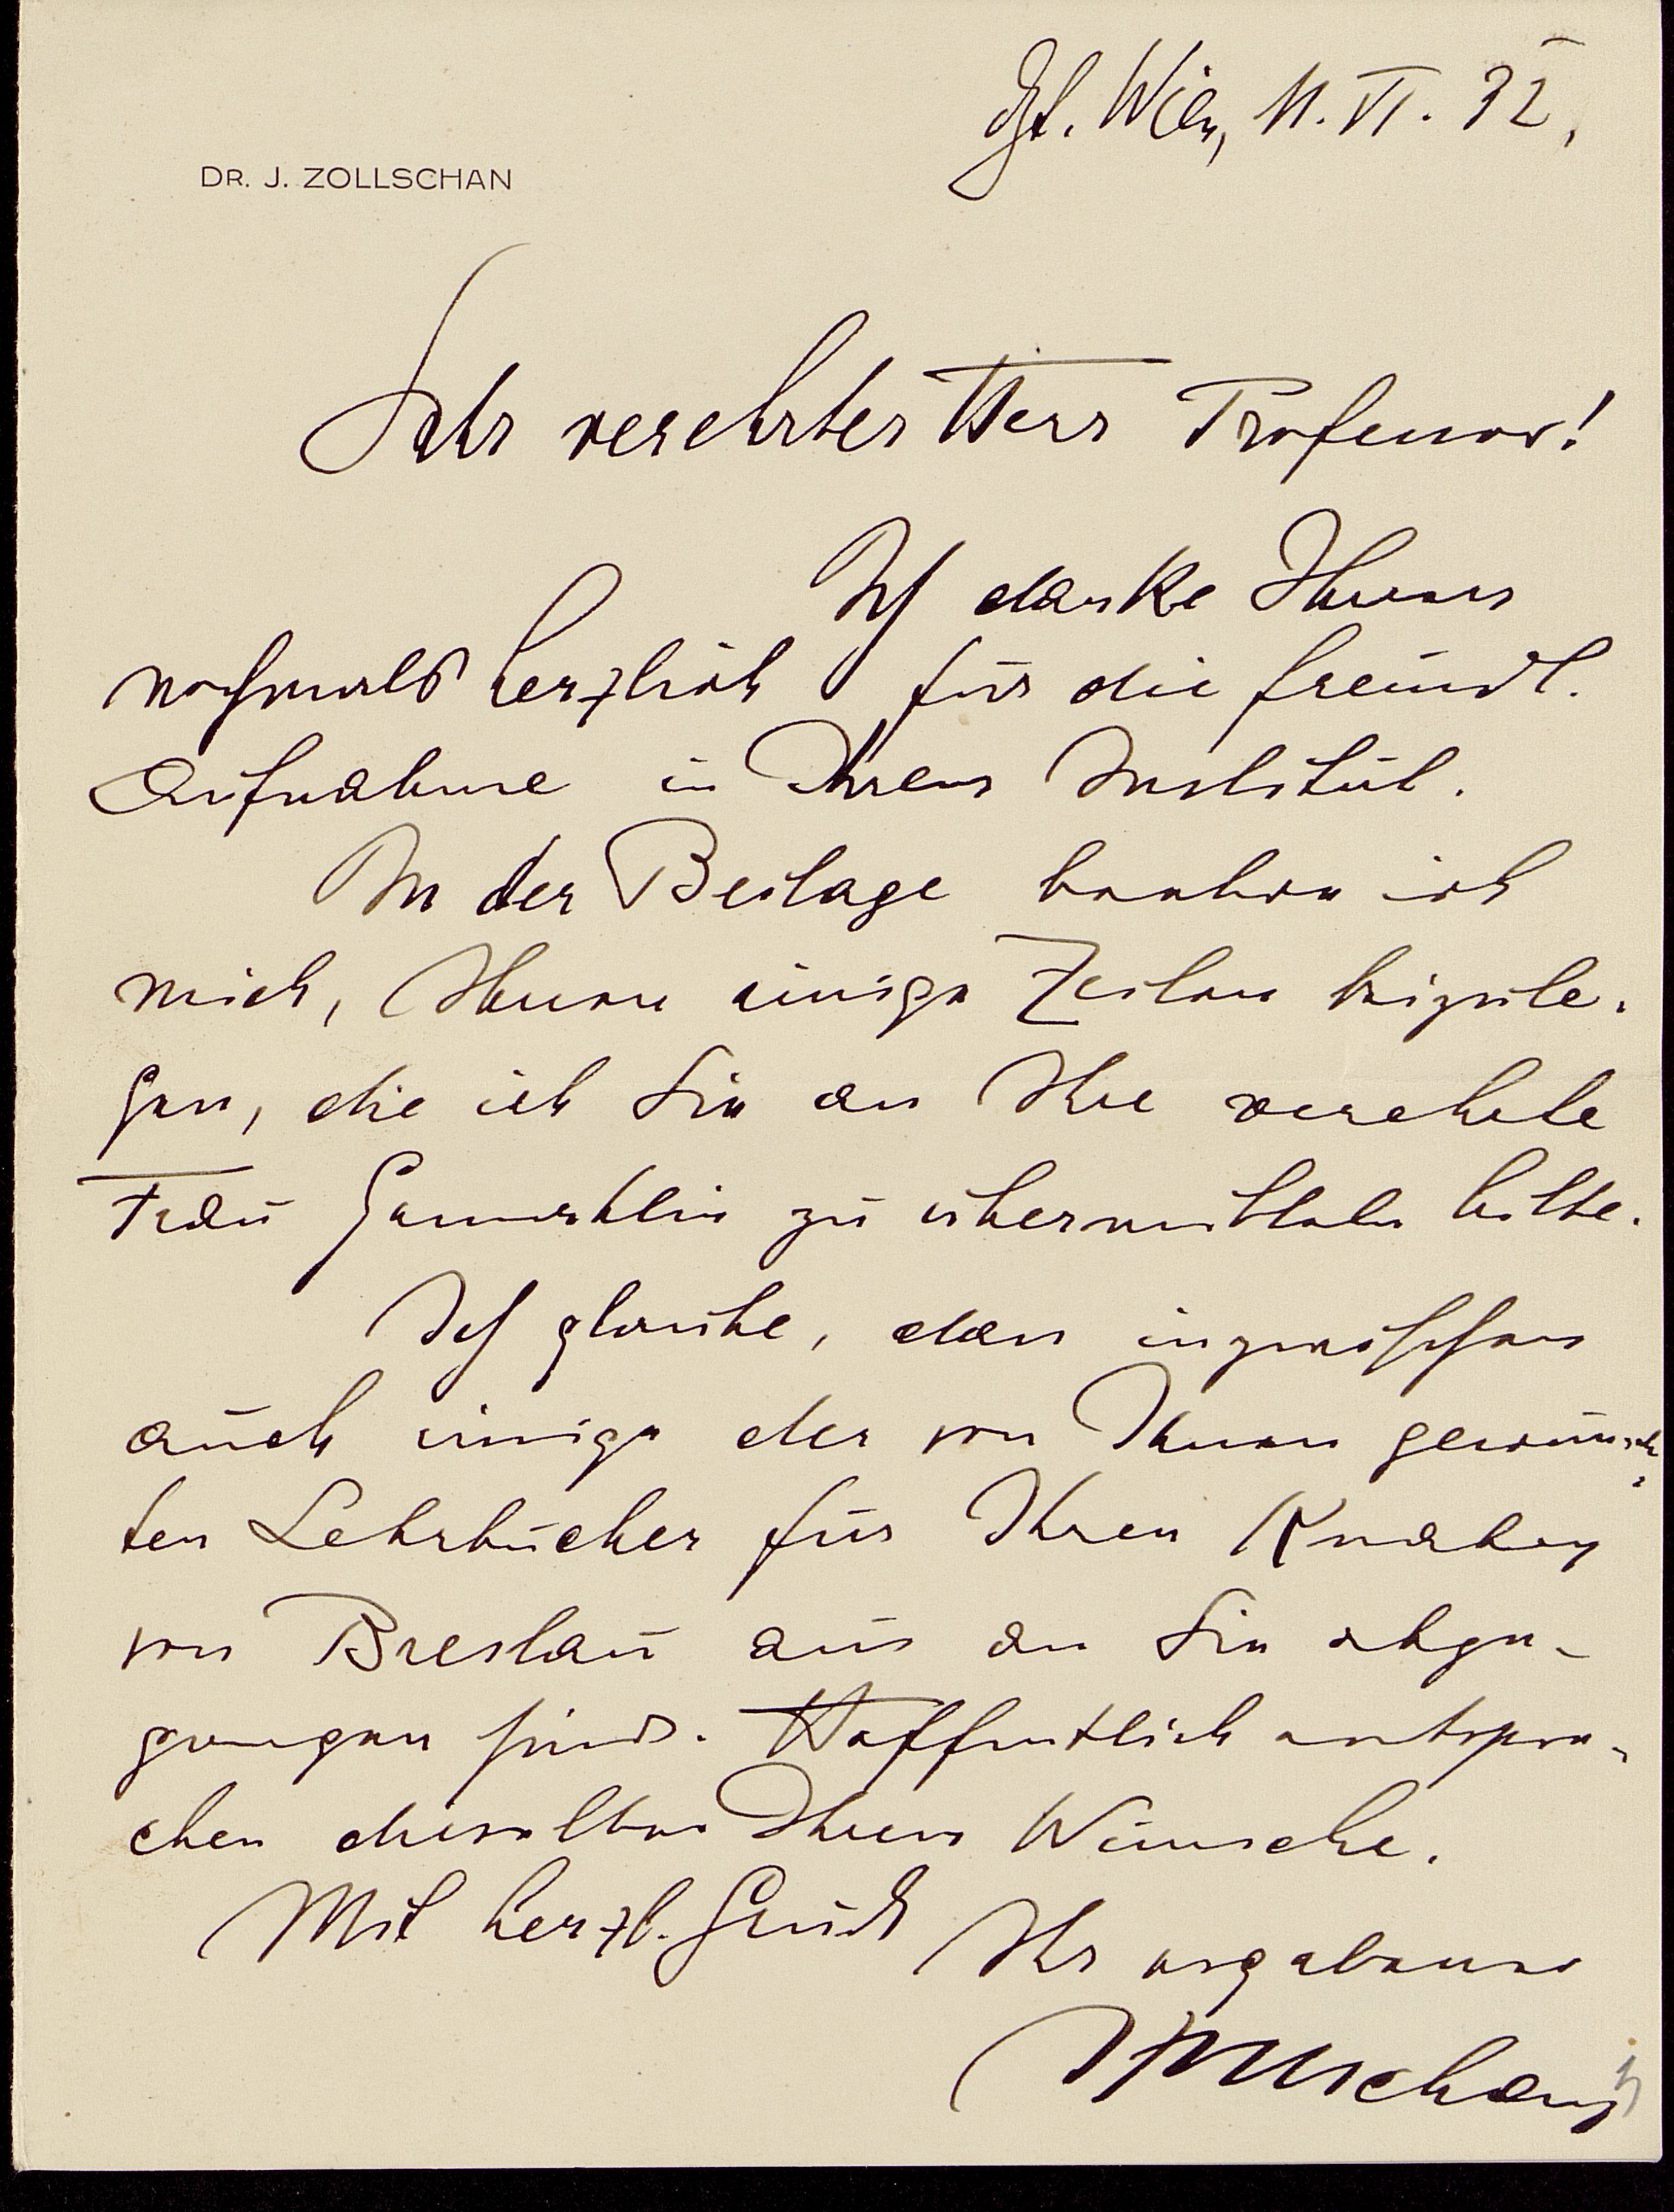 dzt. Wien, 11. VI. 32,
DR. J. ZOLLSCHAN
Sehr verehrter Herr Professor!
Ich danke Ihnen
nochmals herzlich für die freundl.
Aufnahme in Ihrem Institut.
In der Beilage beehre ich
mich, Ihnen einige Zeilen beizule-
gen, die ich Sie an Ihre verehrte
Frau Gemahlin zu übermitteln bitte.
Ich glaube, dass inzwischen
auch einige der von Ihnen gewünsch-
ten Lehrbücher für Ihren Knaben
von Breslau aus an Sie abge-
gangen sind. Hoffentlich entspre-
chen dieselben Ihrem Wunsche.
Mit herzl. Gruß Ihr ergebener
Zollschan